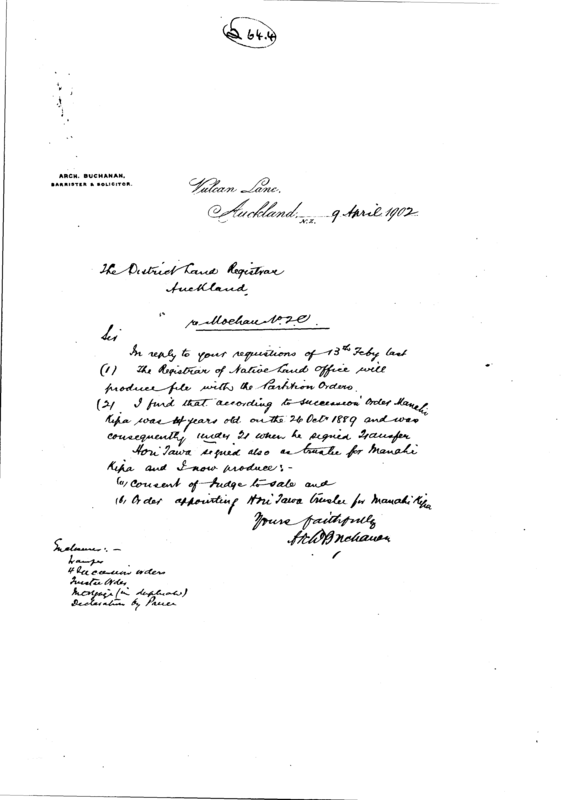 64.4
ARCH. BUCHANAN,
BARRISTER & SOLICITOR.
Vulcan Lane,
Auckland, N.Z. 9 April 1902
The District Land Registrar
Auckland,
re Moehau No. 2C.
Sir
In reply to your requisitions of 13th Feby last
(1) The Registrar of Native Land Office will
produce file with the Partition Orders.
(2) I find that according to succession Order Manahi
Kipa was years old on the 26 Oct 1889 and was
consequently under 21 when he signed Transfer
Hori Tawa signed also as trustee for Manahi
Kipa and I now produce:-
(a) Consent of Judge to sale and
(b) Order appointing Hori Tawa trustee for Manahi Kipa
Yours faithfully
Arch Buchanan
Enclosures:-
Transfer
4 Succession orders
Trustee Order
Mortgage (in duplicate)
Declaration by